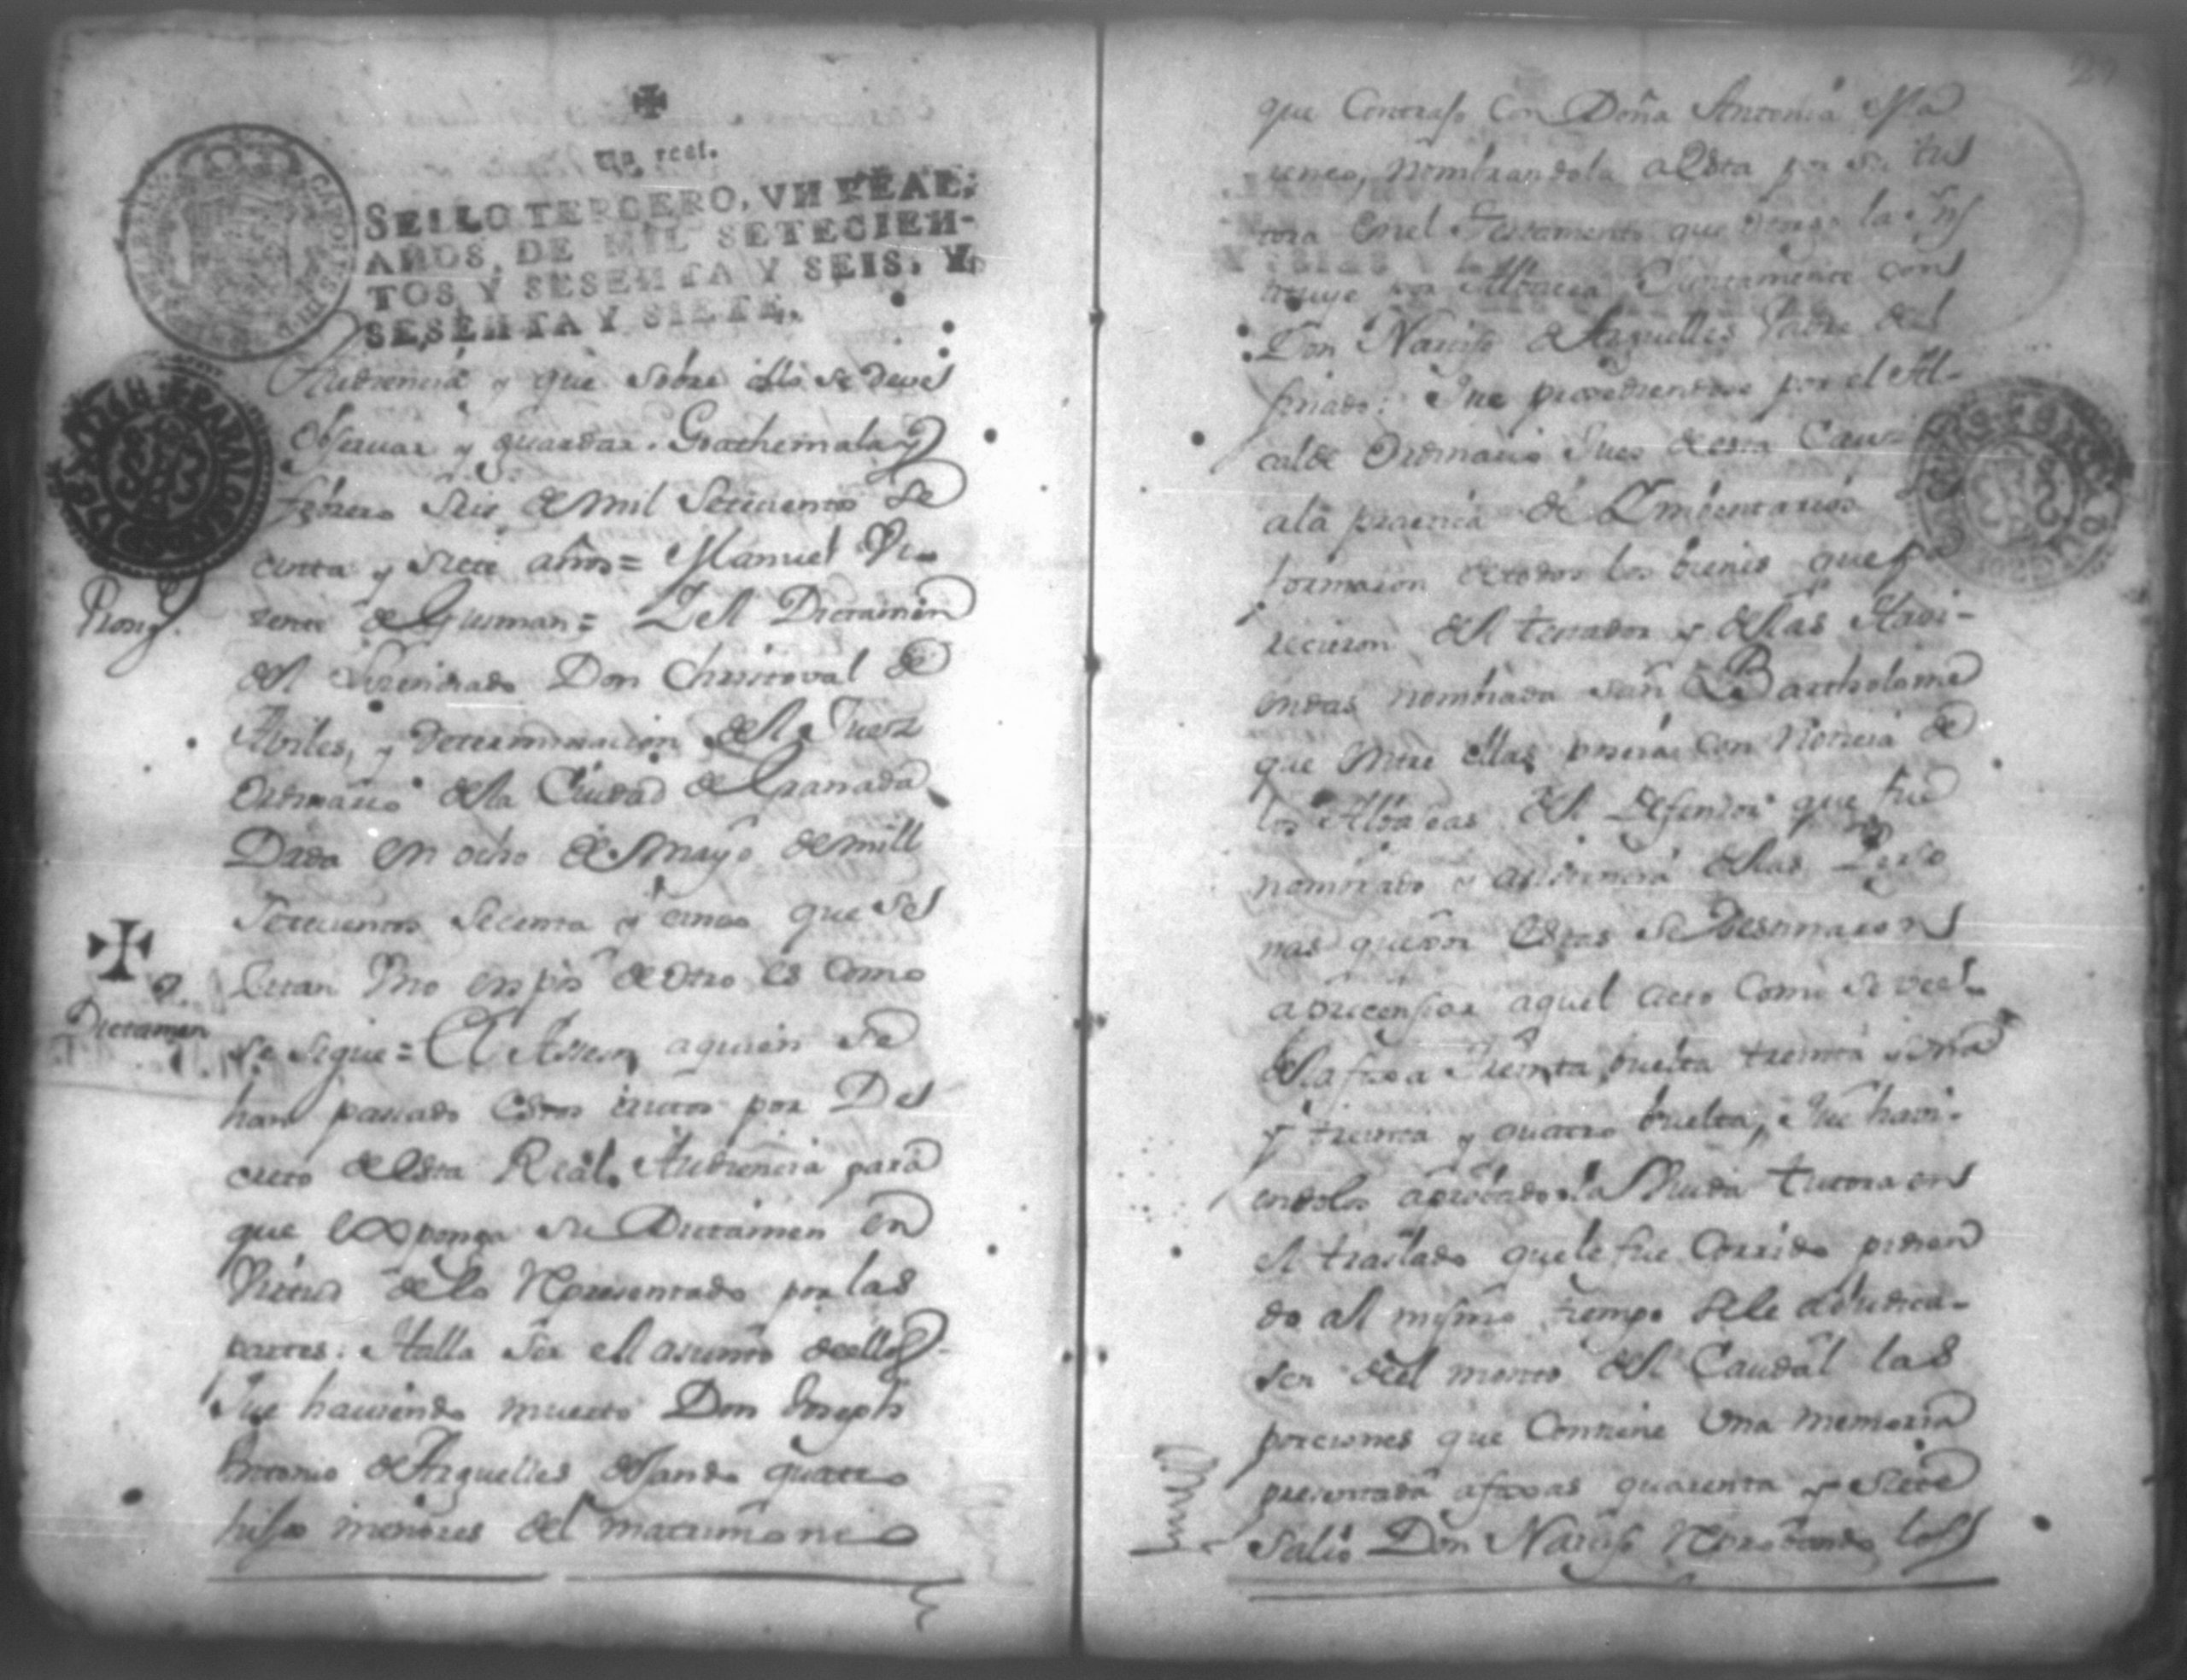 Un real.
SELLO TERCERO, VN REAL,
AÑOS, DE MIL SETECIEN-
TOS Y SESENTA Y SEIS, Y
SESENTA Y SIETE.
Audiencia y que sobre ello se deve
Observar y guardar. Goathemala y
febrero seis de mil Setecientos se
centa y siete años = Manuel Vi-
zente de Gusman = Y el Dictamen
del Lizenciado Don Christoval de
Aviles, y determinacion del Juez
Ordinario de la Ciudad de Granada
Dada en ocho de Mayo de mill
Setecientos secenta y cinco que se
citan Uno en pos de otro es como
se sigue = El Assesor aquien se
Dictamen
han passado estos autos por De
creto de esta Real Audiencia para
que exponga su Dictamen en
Virtud de lo Representado por las
partes: Halla ser el asunto de ellos
Que haviendo muerto Don Joseph
Antonio de Arguelles dejando quatro
hijos menores del matrimonio
que Contrajo con Doña Antonia Ma
nombrandola a esta por su tu
tora en el Testamento que otorgo la ins
tituye por Albacea Juntamente con
Don Narciso de Arguelles Padre del
finado: Que procediendose por el Al-
calde Ordinario Jues de esta Cau-
ala practica de Ymbentarios
formaron de todos los bienes que pa
recieron del testador y de las Hazi-
endas nombrada San Bartholome
que entre ellas poseia con noticia de
los Albaceas del Defensor que fue
nombrado y asistencia de las Perso
nas que por estas se destinaron
a presenciar aquel acto como se vee
de la foxa treinta buelta treinta y una
y treinta y quatro buelta, Que havi-
endolos aprobado la Viuda tutora en
el traslado que le fue Corrido pidien
do al mismo tiempo se le adjudica-
sen del monto del Caudal las
porciones que Contiene Una memoria
presentada afoxas quarenta y siete
Salio Don Narciso Reprobando los